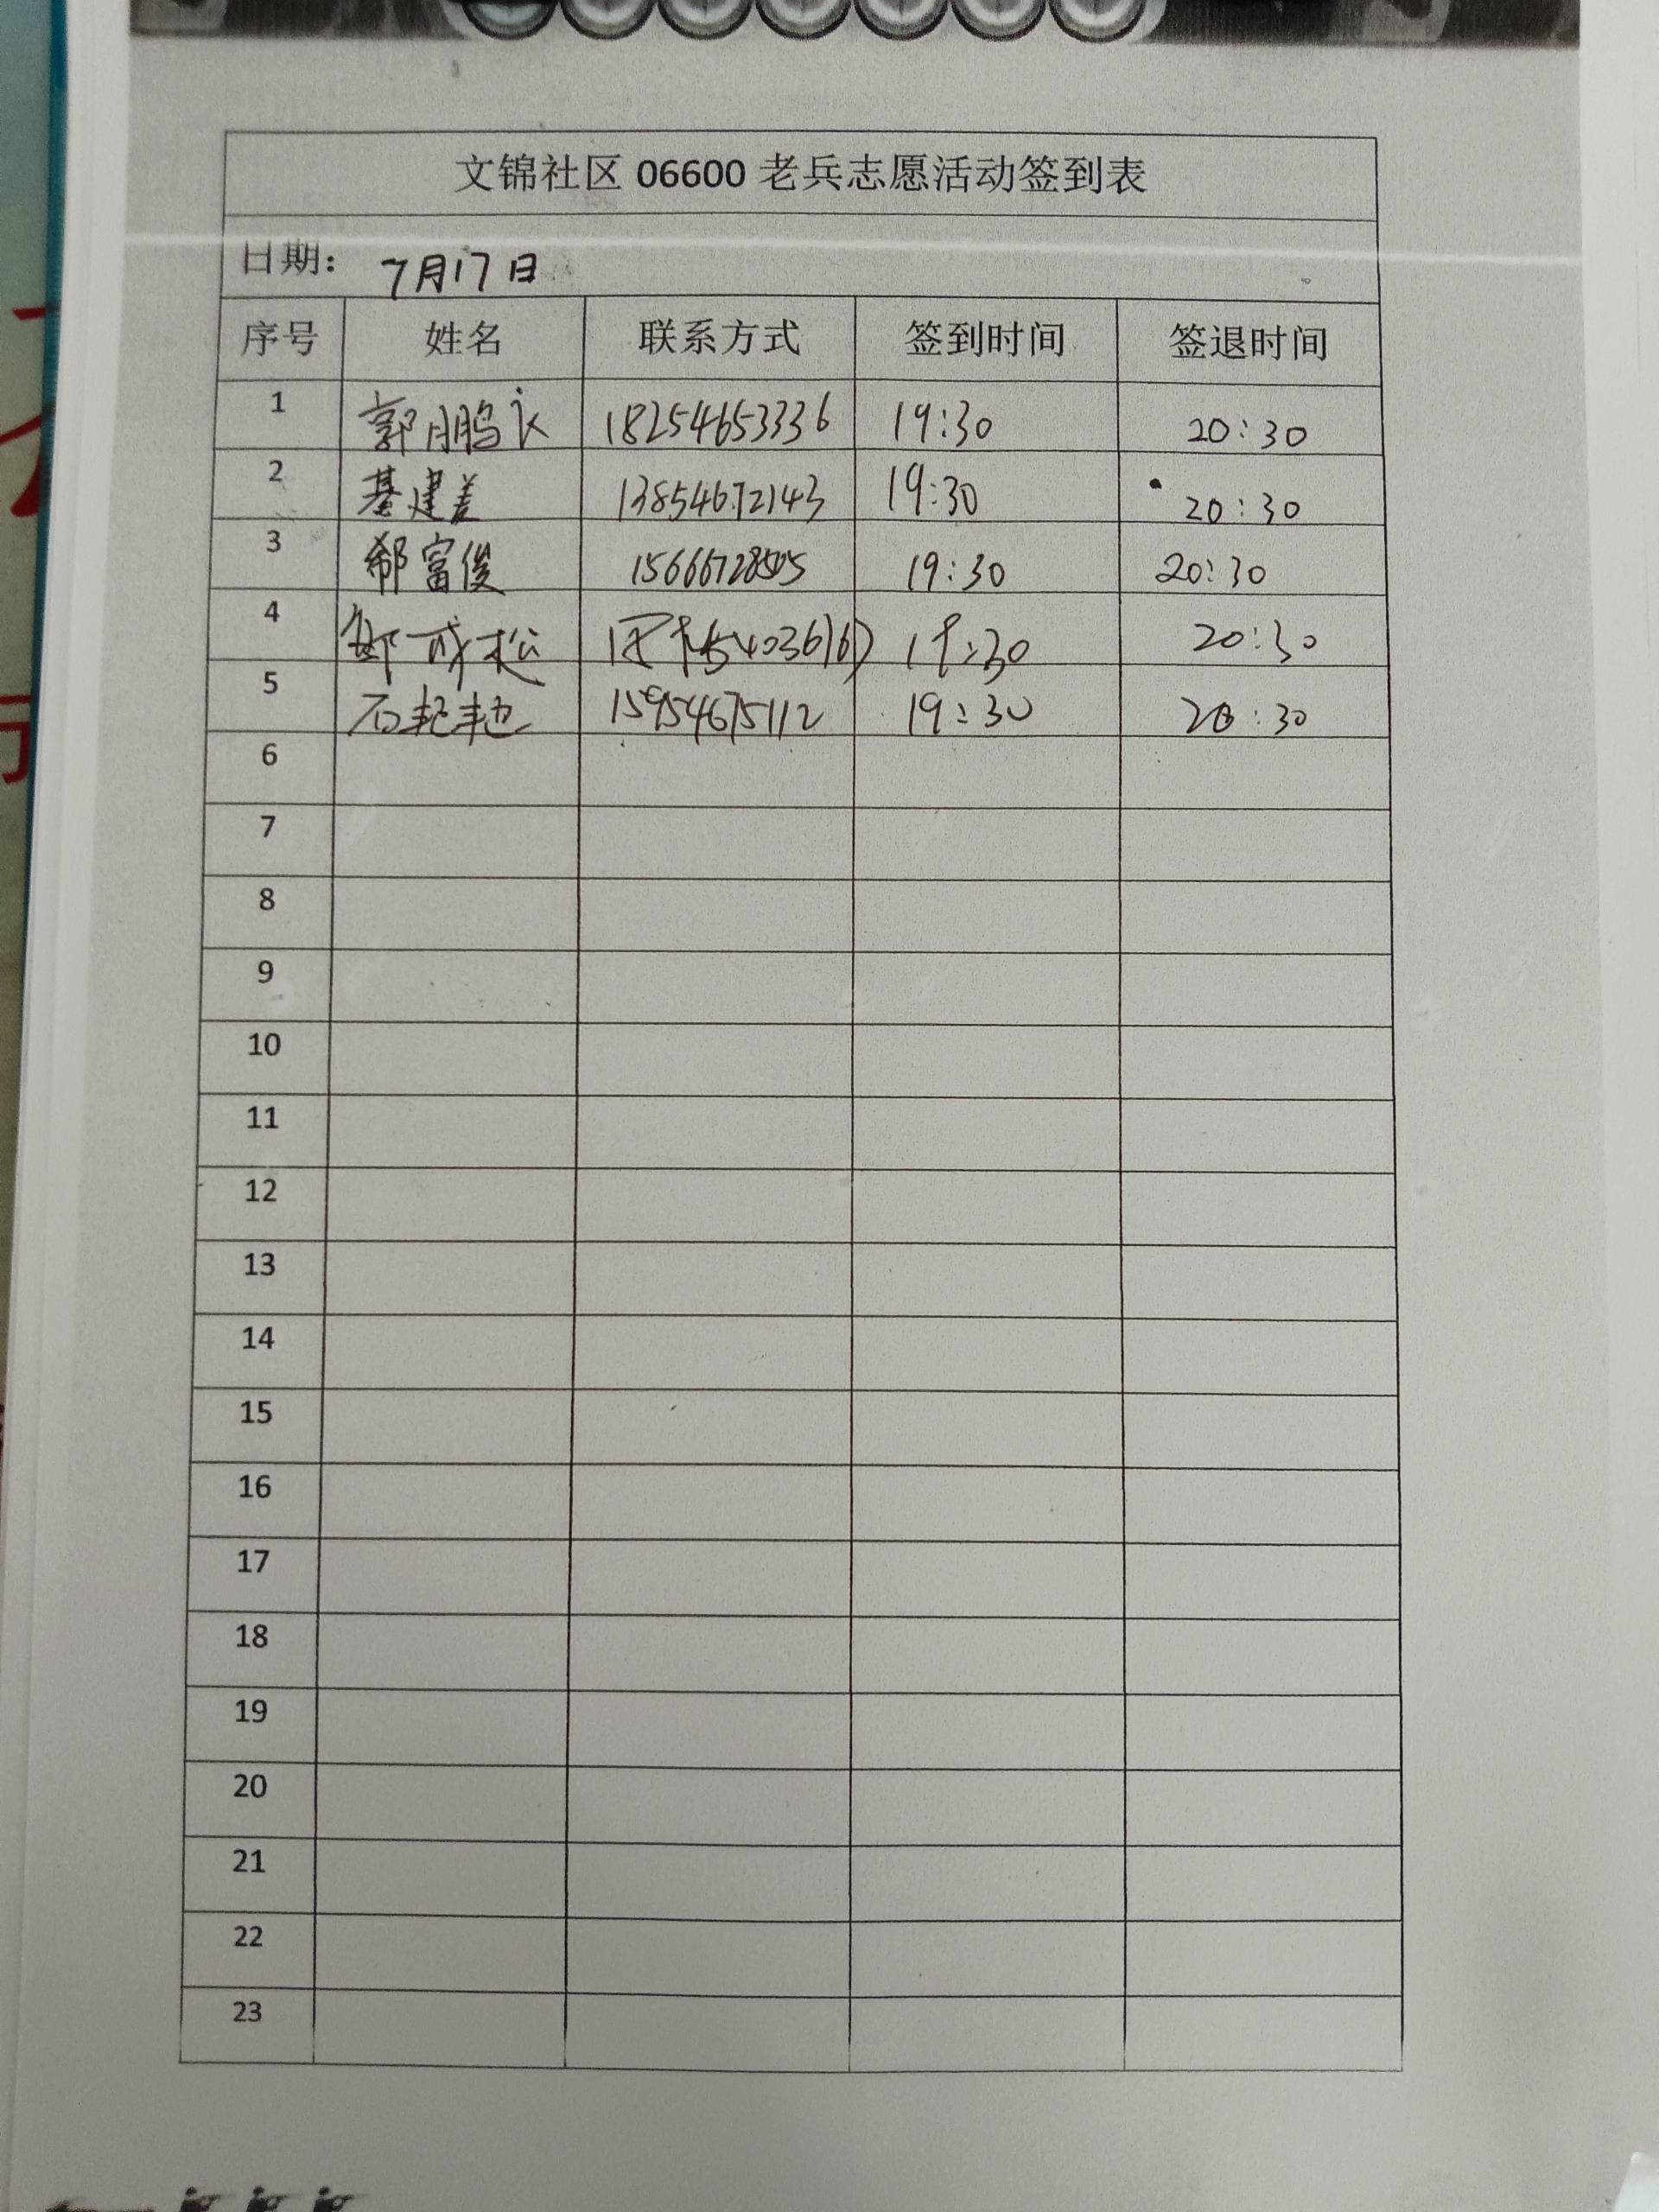 文锦社区 06600 老兵志愿活动签到表
日期: 7月17日
序号 姓名 联系方式 签到时间 签退时间
1 郭鹏飞 18254653336 19:30 20:30
2 綦建 13854672143 19:30 20:30
3 郗富俊 15666728505 19:30 20:30
4 松 19:30 20:30
5 石艳艳 15954675112 19:30 20:30
6
7
8
9
10
11
12
13
14
15
16
17
18
19
20
21
22
23